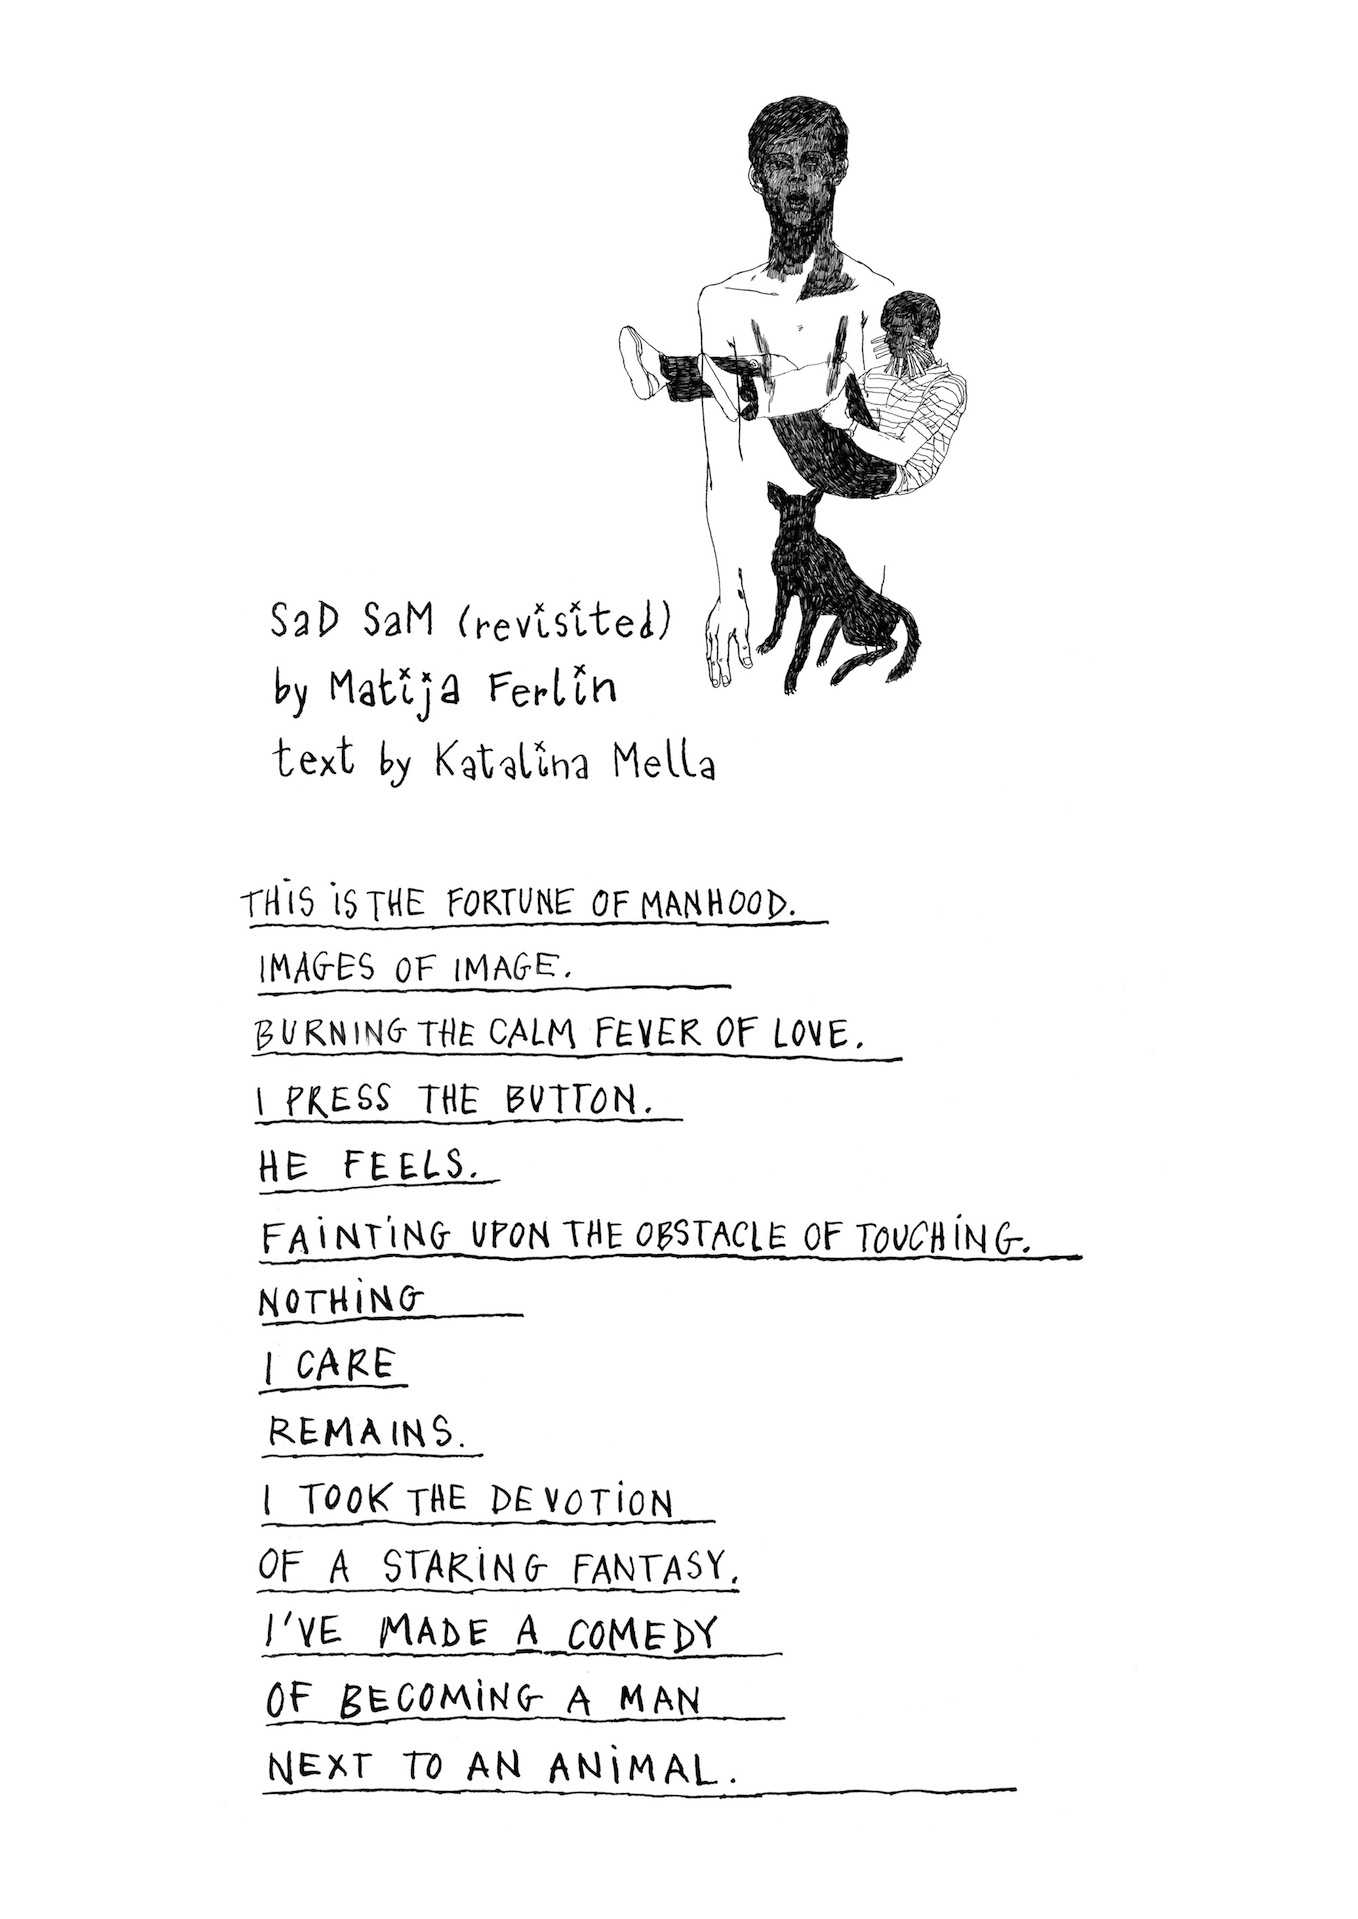 SaD SaM (revisited)
by Matija Ferlin
text by Katalina Mella
THiS iS THE FORTUNE OF MANHOOD.
IMAGES OF IMAGE.
BURNING THE CALM FEVER OF LOVE.
I PRESS THE BUTTON.
HE FEELS.
FAiNTiNG UPON THE OBSTACLE OF TOUCHiNG.
NOTHiNG
I CARE
REMAINS.
I TOOK THE DEVOTiON
OF A STARiNG FANTASY.
I'VE MADE A COMEDY
OF BECOMiNG A MAN
NEXT TO AN ANiMAL.